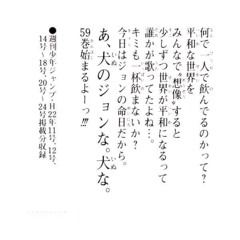 何で一人で飲んでるのかって？
平和な世界を
みんなで“想像”すると
少しずつ世界が平和になるって
誰かが歌ってたよね…。
キミも一杯飲まないか？
今日はジョンの命日だから。
あ、犬のジョンな。犬な。
59巻始まるよーっ!!!
●週刊少年ジャンプ・H22年11号、12号、
14号〜18号、20号〜24号掲載分収録